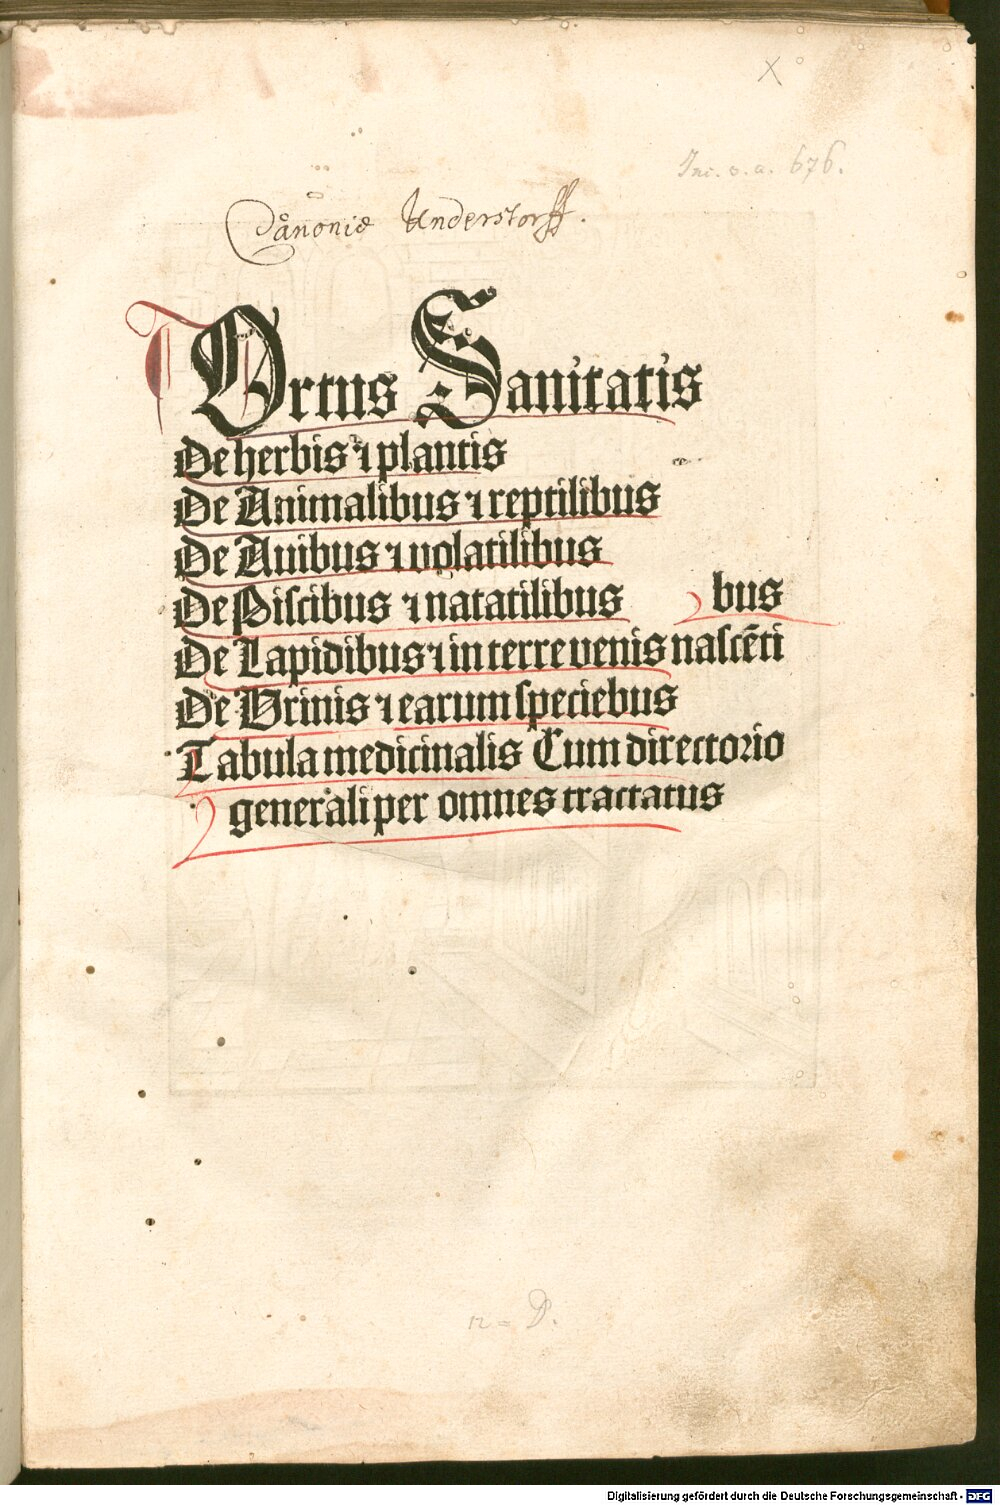 X
Inc. s. a. 676.
Canoniæ Understorff.
Ortus Sanitatis
De herbis ⁊ plantis
De Animalibus ⁊ reptilibus
De Auibus ⁊ volatilibus
De Piscibus ⁊ natatilibus bus
De Lapidibus ⁊ in terre venis nascēti
De Vrinis ⁊ earum speciebus
Tabula medicinalis Cum directorio
generali per omnes tractatus
12 = D.
Digitalisierung gefördert durch die Deutsche Forschungsgemeinschaft - DFG